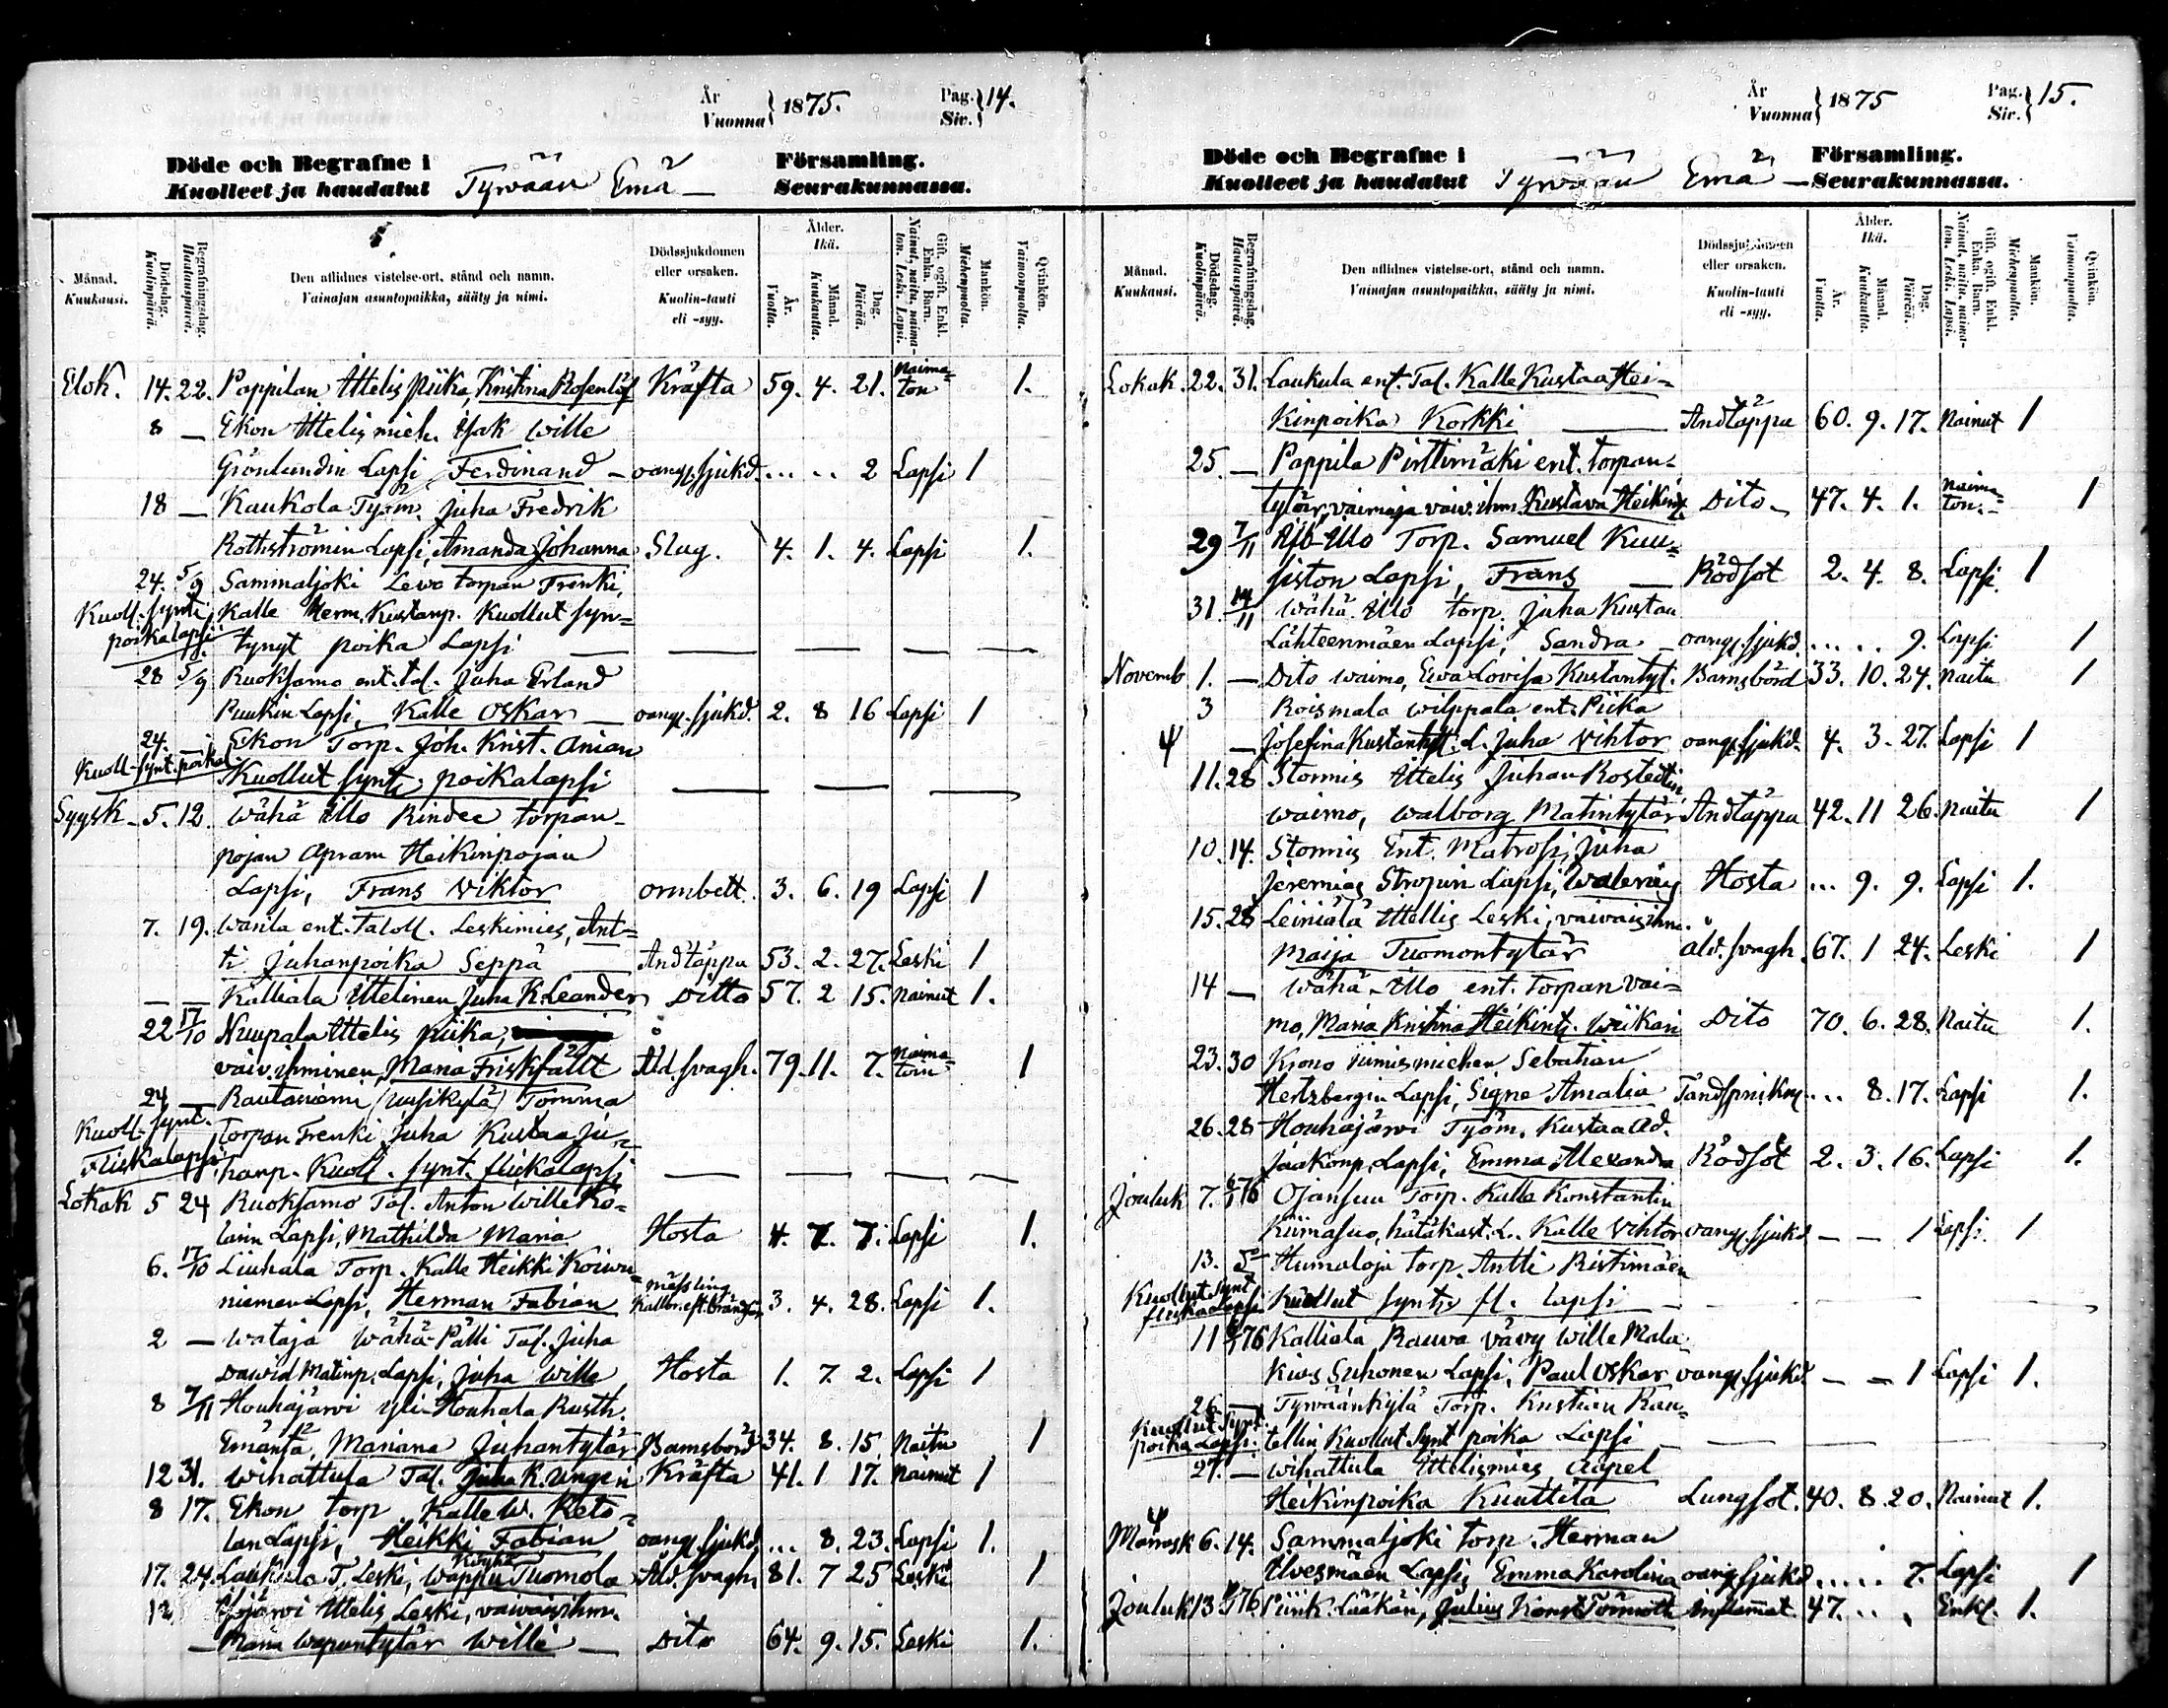 År
Vuonna } 1875. Pag.
Siv. } 14.
Döde och Begrafne i Församling.
Kuolleet ja haudatut Tyrvään Emä — Seurakunnassa.
Månad. Kuukausi.
Dödsdag. Kuolinpäivä.
Begrafningsdag. Hautauspäivä.
Den aflidnes vistelse-ort, stånd och namn.
Vainajan asuntopaikka, sääty ja nimi.
Dödssjukdomen eller orsaken.
Kuolin-tauti eli -syy.
Ålder. Ikä.
År. Vuotta.
Månad. Kuukautta.
Dag. Päivää.
Gift, ogift. Enkl. Enka. Barn.
Nainut, naitu, naimaton. Leski. Lapsi.
Mankön. Miehenpuolta.
Qvinkön. Vaimonpuolta.
Elok. 14. 22. Pappilan Ittelis Piika, Kristina Rosenlöf Kräfta 59. 4. 21. Naimaton 1.
8 — Ekon Ittelis mieh. Isak Wille
Grönlundin Lapsi, Ferdinand — oang. sjukd. ... .. 2 Lapsi 1
18 — Kaukola Työm. Juha Fredrik
Rothströmin Lapsi, Amanda Johanna Slag. 4. 1. 4. Lapsi 1.
24. 5/9 Sammaljoki Lewo torpan Trenki,
Kuoll. synt. Kalle Herm. Kustanp. Kuollut syn=
poikalapsi tynyt poika Lapsi — — — — —
28 5/9 Ruoksamo ent. tal. Juha Erland
Puukin Lapsi, Kalle Oskar — oang. sjukd. 2. 8 16 Lapsi 1
24. — Ekon Torp. Joh. Krist. Anian
Kuoll. synt. poikal. Kuollut synt. poikalapsi — — —
Syysk. 5. 12. Wähä Illo Rindee torpan-
pojan Apram Heikinpojan
Lapsi, Frans Viktor ormbett. 3. 6. 19 Lapsi 1
7. 19. Wanla ent. Taloll. Leskimies, Ant=
ti Juhanpoika Seppä Andtäppa 53. 2. 27. Leski 1
— — Kalliala Ittelinen Juha K. Leander Ditto 57. 2 15. Nainut 1.
22 17/10 Nuupala Ittelis piika,
vaiv. ihminen, Maria Friskfält Åld. svagh. 79. 11. 7. Naimatoin 1
24 — Rautaniemi (Uusikylä) Tomma
Kuoll. synt. torpan Trenki Juha Kustaa Ju=
Fliskalapsi hanp. Kuoll. synt. flickalapsi — — — —
Lokak 5 24 Ruoksamo Tal. Anton Wille Ko=
larin Lapsi, Mathilda Maria Hosta 4. 7. 7. Lapsi 1.
6. 17/10 Liuhala Torp. Kalle Heikki Koivu=
niemen Lapsi, Herman Fabian mässling 3. 4. 28. Lapsi 1.
2 — Wataja Wähä-Pälli Tal. Juha
Dawid Matinp. Lapsi, Juha Wille Hosta 1. 7. 2. Lapsi 1
8 7/11 Houhajärvi Yli-Houhala Rusth.
Emäntä, Mariana Juhantytär Barnsbörd 34. 8. 15 Naitu 1
12 31. Wihattula Tal. Juha K. Ungen Kräfta 41. 1 17. Nainut 1
8 17. Ekon torp. Kalle W. Keto=
lan Lapsi, Heikki Fabian oang. sjukd. ... 8. 23. Lapsi 1.
17. 24. Laukula T. Leski, Köyhä Wappu Tuomola Åld. svagh. 81. 7 25 Leski 1
12 Ittelis Leski, vaivaisihm.
— Maria Wapuntytär Wille — Dito 64. 9. 15. Leski 1.
År
Vuonna } 1875 Pag.
Siv. } 15.
Döde och Begrafne i Församling.
Kuolleet ja haudatut Tyrvään Emä — Seurakunnassa.
Månad. Kuukausi.
Dödsdag. Kuolinpäivä.
Begrafningsdag. Hautauspäivä.
Den aflidnes vistelse-ort, stånd och namn.
Vainajan asuntopaikka, sääty ja nimi.
Dödssjukdomen eller orsaken.
Kuolin-tauti eli -syy.
Ålder. Ikä.
År. Vuotta.
Månad. Kuukautta.
Dag. Päivää.
Gift, ogift. Enkl. Enka. Barn.
Nainut, naitu, naimaton. Leski. Lapsi.
Mankön. Miehenpuolta.
Qvinkön. Vaimonpuolta.
Lokak. 22. 31. Laukula ent. Tal. Kalle Kustaa Hei=
kinpoika Korkki — Andtäppa 60. 9. 17. Nainut 1
25. — Pappila Pirttimäki ent. torpan-
tytär, vaimaja vaiv. ihm. Kustava Heikint. Dito 47. 4. 1. Naimaton. 1
29 7/11 Illo Torp. Samuel Kuu=
siston Lapsi, Frans — Rödsot 2. 4. 8. Lapsi. 1
31. 14/11 Wähä Illo torp. Juha Kustaa
Lähteenmäen Lapsi, Sandra oang. sjukd. ... .. 9. Lapsi 1
Novemb 1. — Dito waimo, Eva Lovisa Kustantyt. Barnsbörd 33. 10. 24. Naitu 1
3 Roismala Wilppala ent. Piika
— Josefina Kustantyt. L. Juha Vihtor oang. sjukd. 4. 3. 27. Lapsi 1
11. 28 Stormis Ittelis Juhan Rostedtin
waimo, Walborg Matintytär Andtäppa 42. 11 26. Naitu 1
10. 14. Stormis Ent. Matrosi, Juha
Jeremias Lapsi, Walerius Hosta ... 9. 9. Lapsi 1.
15. 28 Leiniälä Ittellis Leski, vaivaisihm.
Maija Tuomontytär åld. svagh. 67. 1 24. Leski 1
14 — Wähä-Illo ent. Torpan vai=
mo, Maria Kristina Heikint. Wiikari Dito 70. 6. 28. Naitu 1.
23. 30 Krono nimismiehen Sebatian
Hertzbergin Lapsi, Signe Amalia ... 8. 17. Lapsi 1.
26. 28 Houhajärvi Työm. Kustaa Ad.
Jaakonp. Lapsi, Emma Alexandra Rödsot 2. 3. 16. Lapsi 1.
Jouluk 7. 6/1 76 Ojansuu Torp. Kalle Konstantin
Kiimasuo, hätäkast. L. Kalle Vihtor oang. sjukd — — 1 Lapsi 1
13. Humaloja Torp. Antti Ristimäen
Kuollut synt. flickalapsi Kuollut synt. fl. lapsi — — — —
11 6/1 76 Kalliala, Rauva vävy Wille Mala=
kias Suhonen Lapsi, Paul Oskar oang. sjukd — — 1 Lapsi 1.
26 — Tyrväänkylä Torp. Kristian Ran=
Kuollut synt. poika Lapsi. tellin Kuollut synt poika Lapsi — — — —
27. — Wihattula Ittelismies Aapel
Heikinpoika Kuuttila Lungsot. 40. 8. 20. Nainut 1.
Marrask 6. 14. Sammaljoki torp. Herman
Ilvesmäen Lapsi, Emma Karolina oang. sjukd. ... .. 7. Lapsi 1
Jouluk 13 76 Piirik. Lääkäri, Julius Konst Törnroth Inflammat. 47. .. . Enkl. 1.